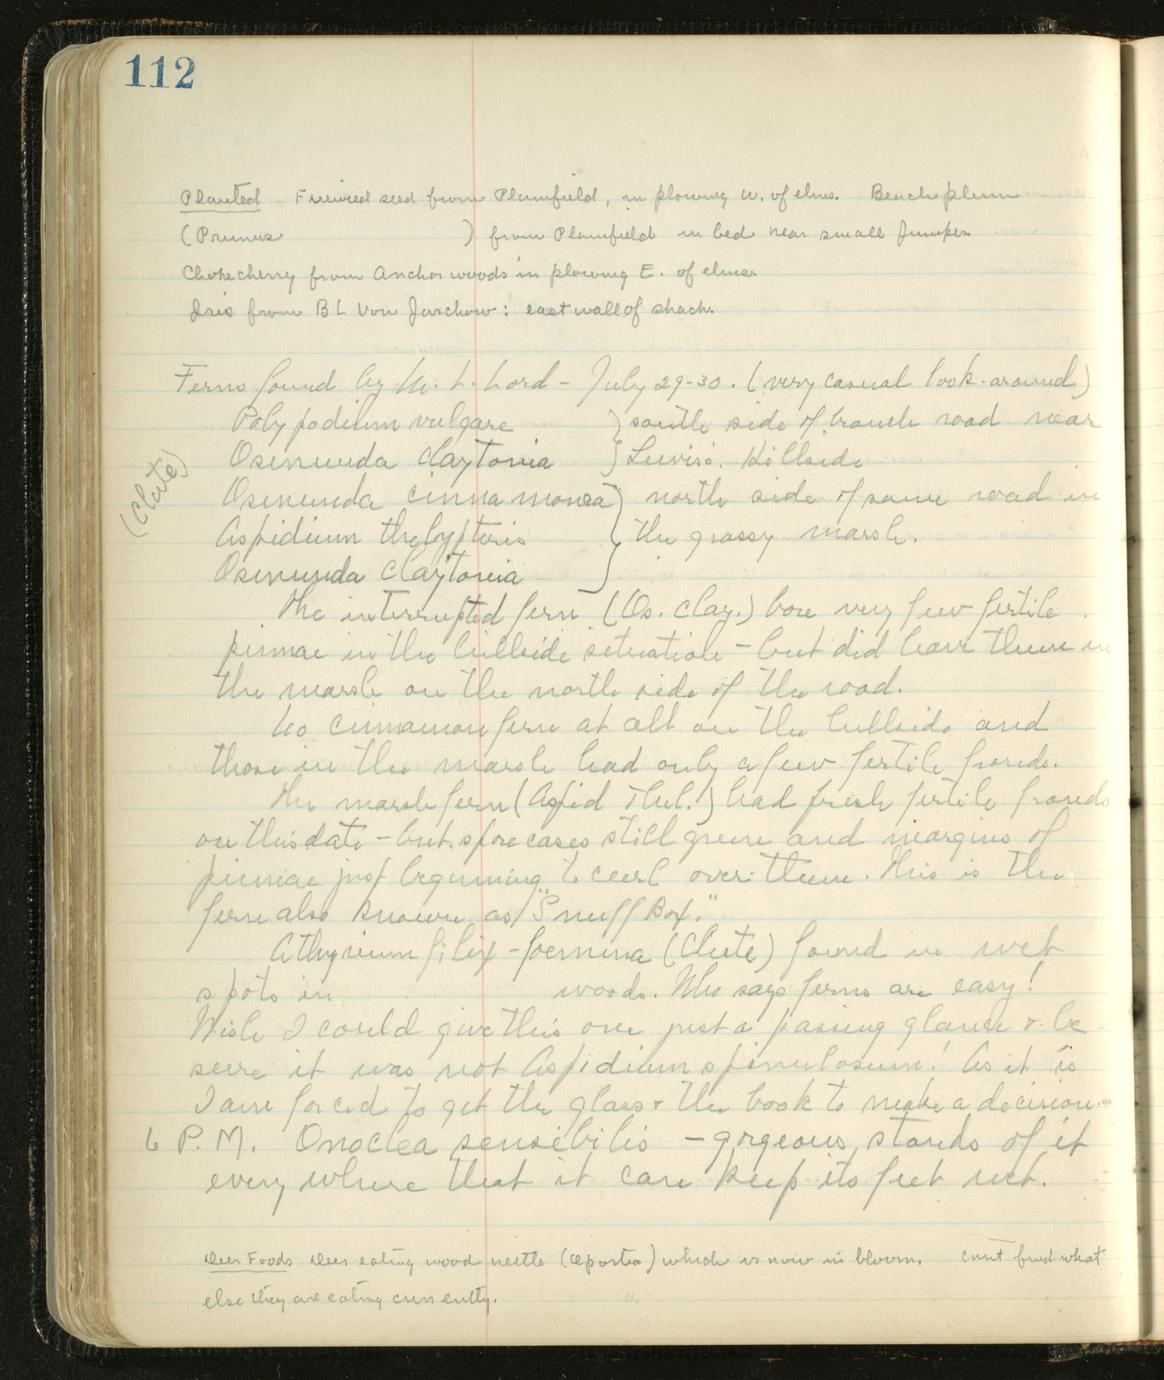 112
Planted Fireweed seed from Plainfield, in plowing W. of elms. Beach plum
(Prunus ) from Plainfield in bed near small Juniper
Chokecherry from Anchor woods in plowing E. of elms.
Iris from B L Von Jarchow: east wall of shack.
Ferns found by M. L. Lord - July 29-30. (very casual look-around)
Polypodium vulgare } south side of branch road near
Osmunda claytonia } Lewis. Hillside
(Clute)
Osmunda cinnamonea } north side of same road in
Aspidium thelypteris } the grassy marsh.
Osmunda Claytonia }
The interrupted fern (Os. Clay.) bore very few fertile
pinnae in the hillside situation - but did have them in
the marsh on the north side of the road.
No cinnamon fern at all on the hillside and
those in the marsh had only a few fertile fronds.
The marsh fern (Aspid Thel.) had fresh fertile fronds
on this date - but spore cases still green and margins of
pinnae just beginning to curl over them. This is the
fern also known as "Snuff Box."
Athyrium filix-foemina (Clute) found in wet
spots in woods. Who says ferns are easy!
Wish I could give this one just a passing glance & be
sure it was not Aspidium spinulosum! As it is
I am forced to get the glass & the book to make a decision.
6 P.M. Onoclea sensibilis - gorgeous stands of it
everywhere that it can keep its feet wet.
Deer Foods Deer eating wood nettle (Laportea) which is now in bloom. Can't find what
else they are eating currently.